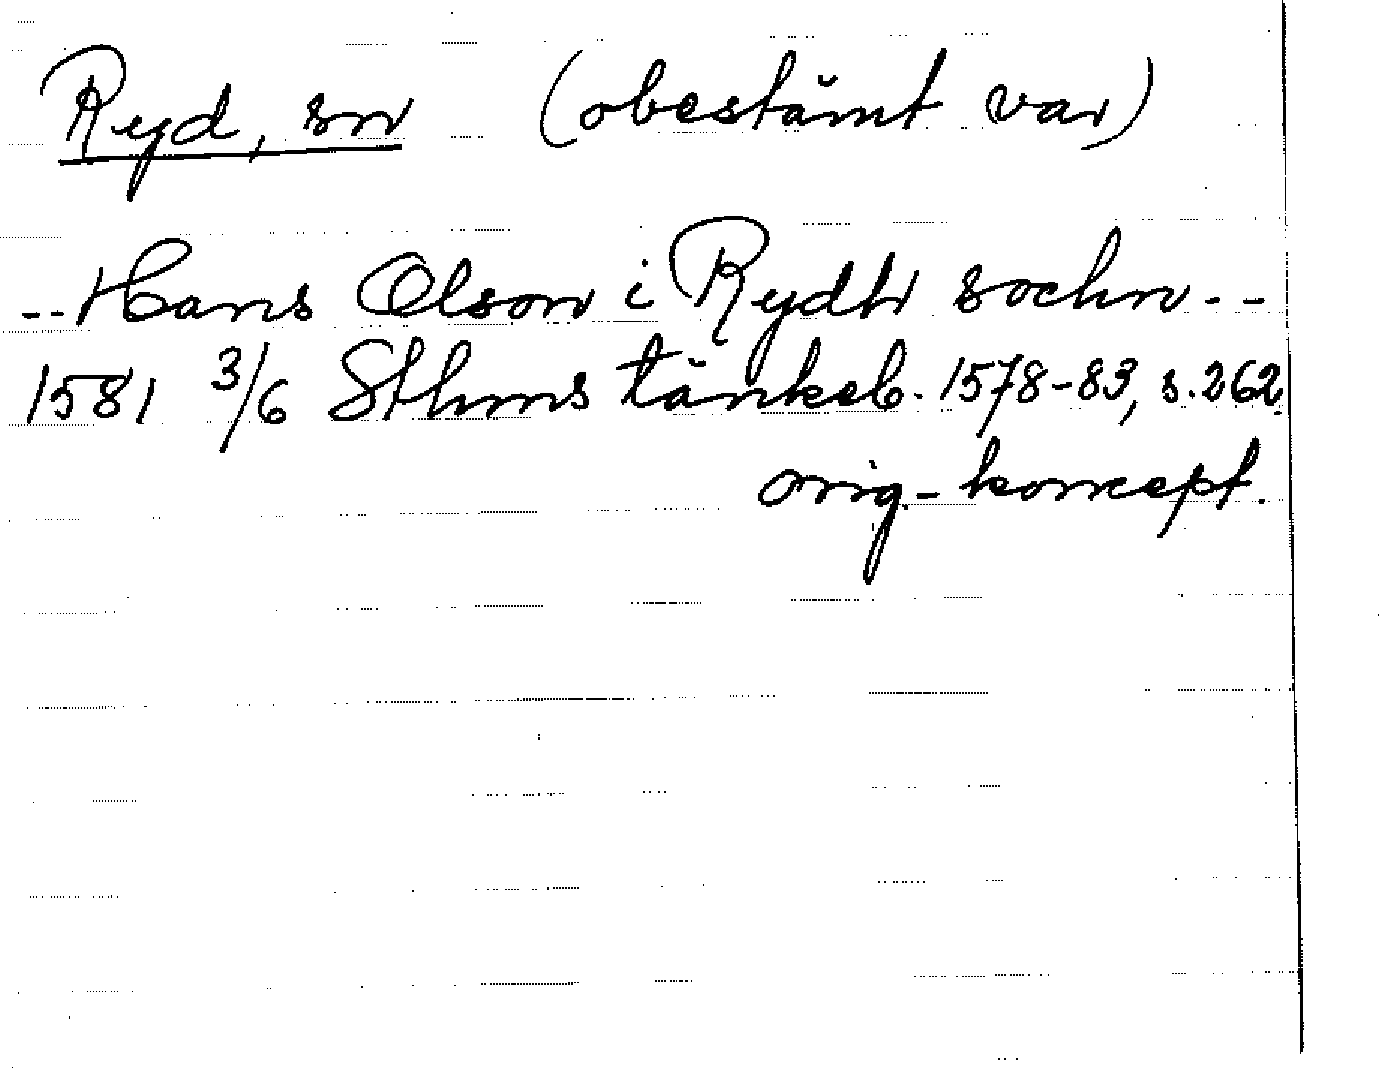 Ryd, sn (obestämt var)
-- Hans Olson i Rydh sochn --
1581 3/6 Sthms tänkeb. 1578-83, s. 262
orig-koncept.